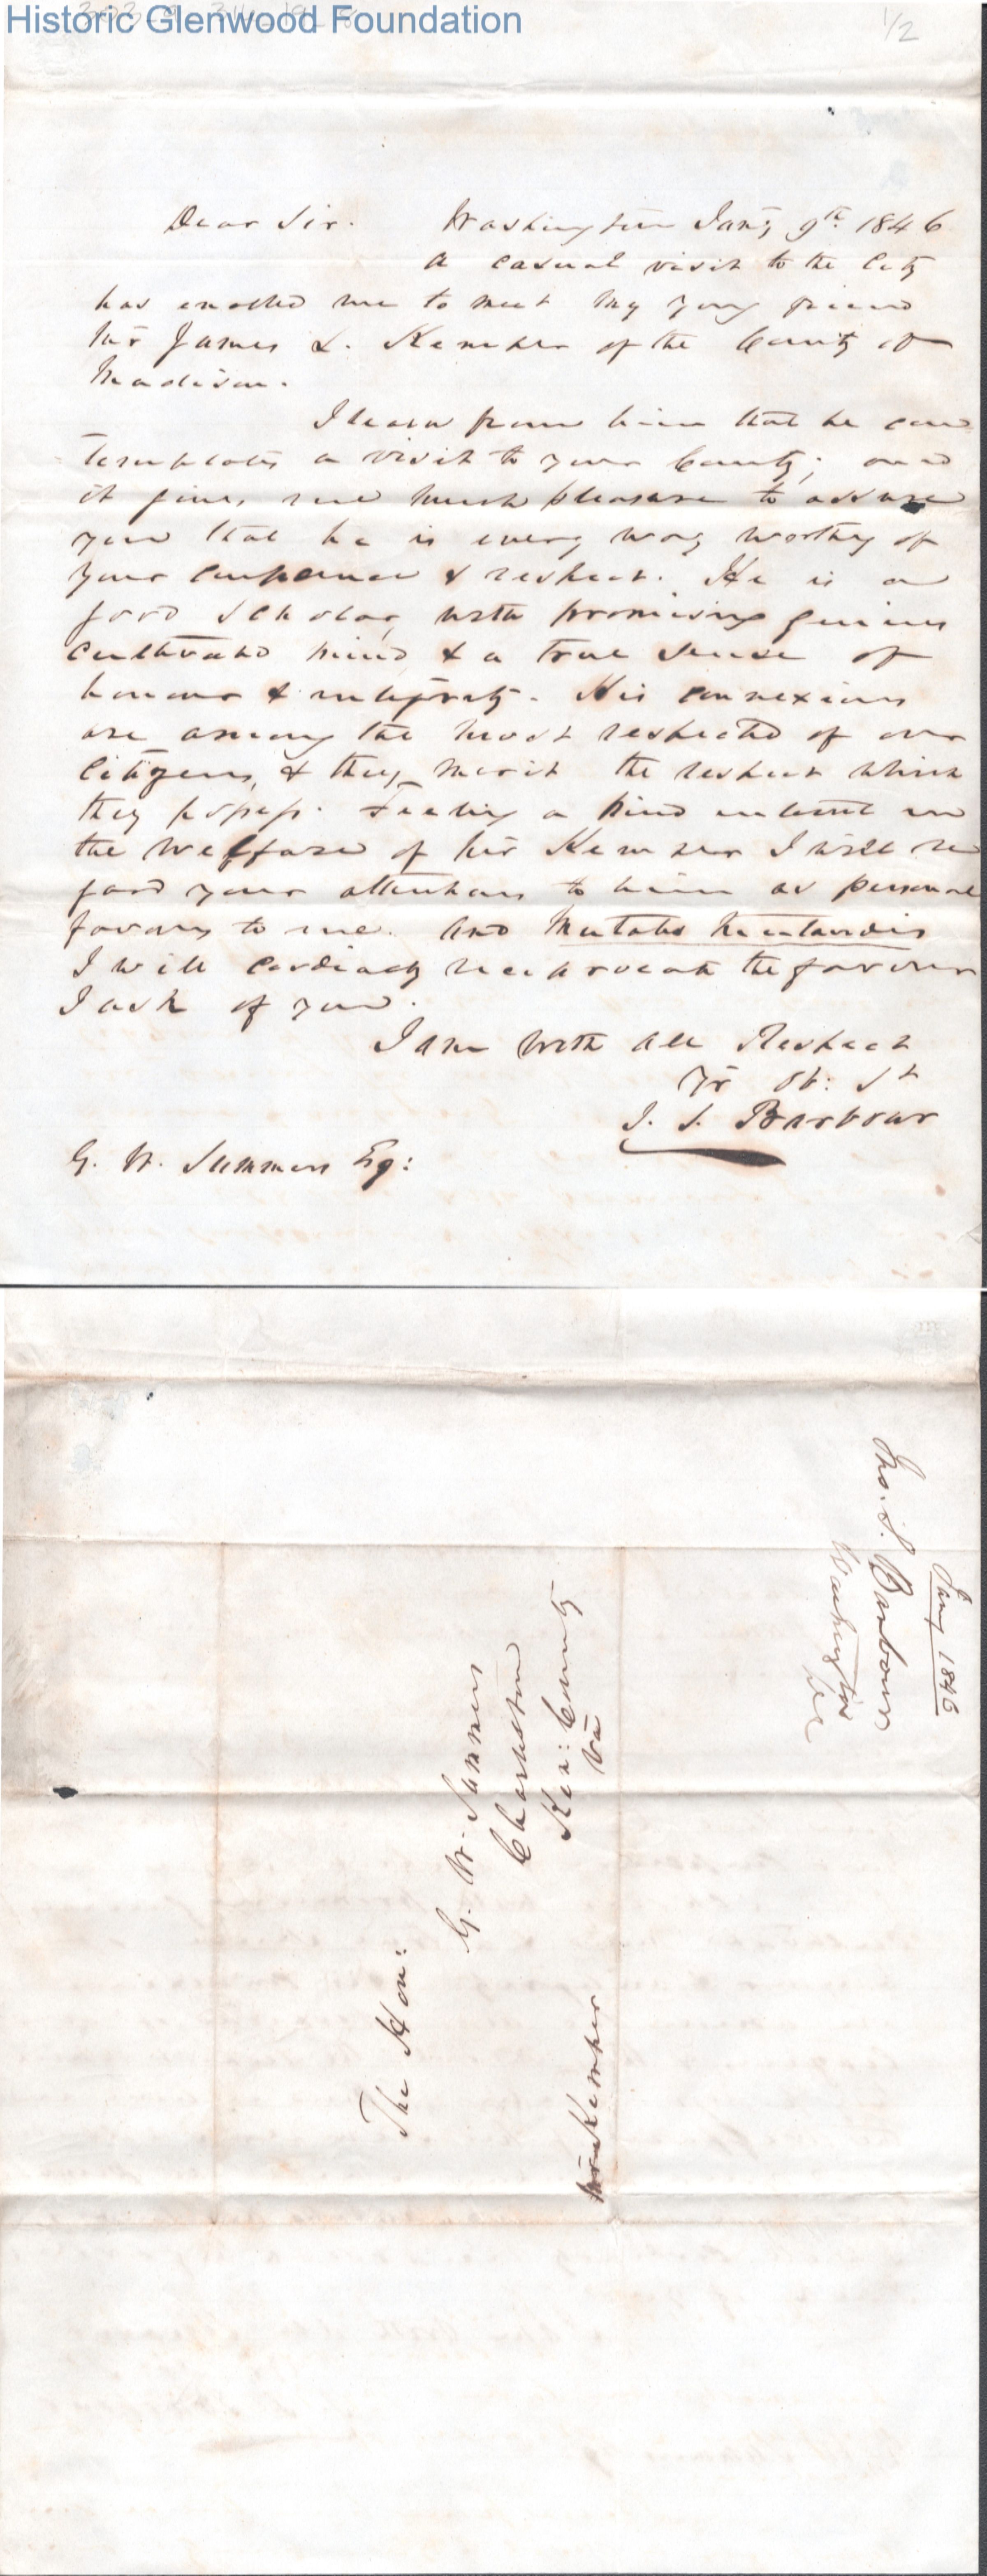 Historic Glenwood Foundation
1/2
Dear Sir. Washington Jany 9th 1846
A casual visit to the City
has enabled me to meet my young friend
Mr James L. Kemper of the County of
Madison.
I learn from him that he con
templates a visit to your County; and
it gives me much pleasure to assure
you that he is every way worthy of
your confidence & respect. He is a
good scholar, with promising genius
cultivated mind & a true sense of
honour & integrity. His connexions
are among the most respected of our
Citizens, & they merit the respect which
they possess. Feeling a kind interest in
the Welfare of Mr Kemper I will re
gard your attentions to him as personal
favours to me. And Mutatis Mutandis
I will cordially reciprocate the favours
I ask of you.
I am with all Respect
Yr Ob: St
J. S. Barbour
G. W. Summers Esq:
Jany 1846
Jno. S. Barbour
Washington
DC
The Hon:
G. W. Summers
Charleston
Kan: County
Va
Mr Kemper